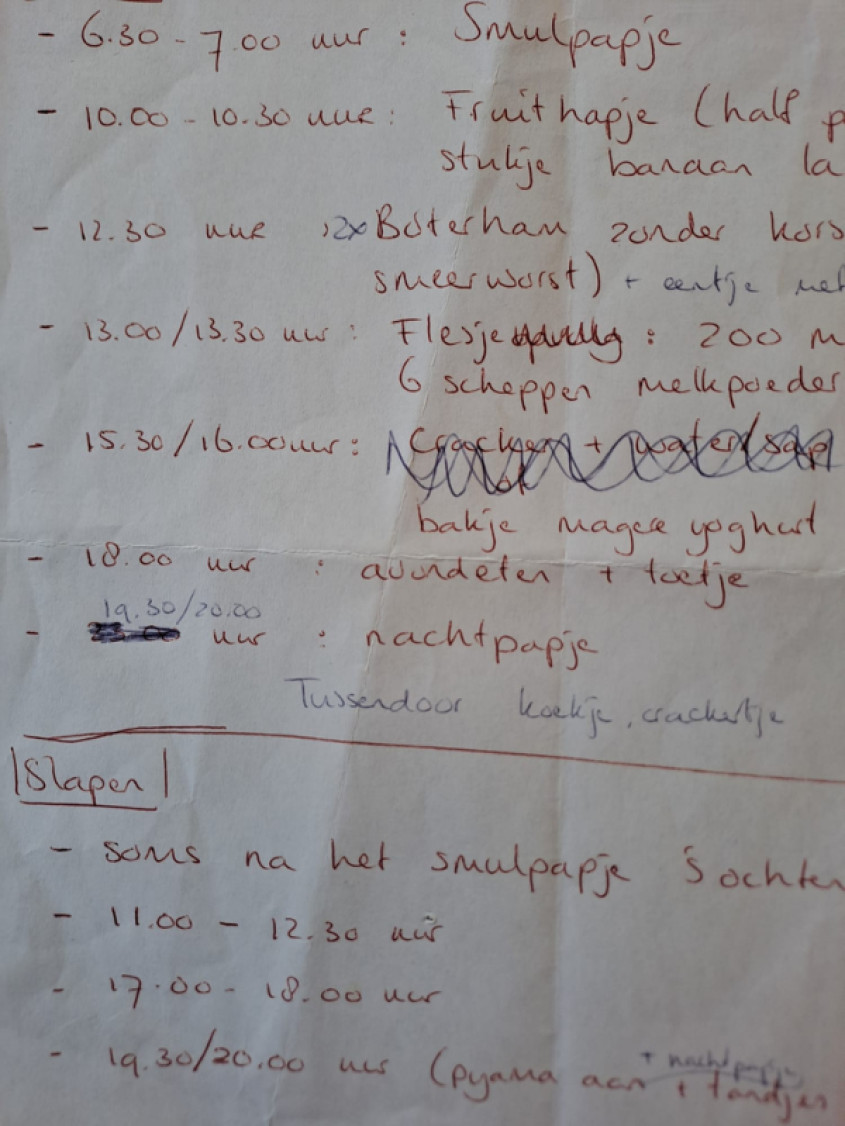 - 6.30 - 7.00 uur : Smulpapje
- 10.00 - 10.30 uur : Fruithapje (half p
stukje banaan la
- 12.30 uur : 2x Boterham zonder kors
smeerworst) + eentje met
- 13.00/13.30 uur : Flesje : 200 m
6 scheppen melkpoeder
- 15.30/16.00 uur : Cracker + water/sap
of
bakje magere yoghurt
- 18.00 uur : avondeten + toetje
19.30/20.00
- uur : nachtpapje
Tussendoor koekje, crackertje
Slapen
- soms na het smulpapje 's ochten
- 11.00 - 12.30 uur
- 17.00 - 18.00 uur
+ nachtpapje
- 19.30/20.00 uur (pyama aan + tandjes